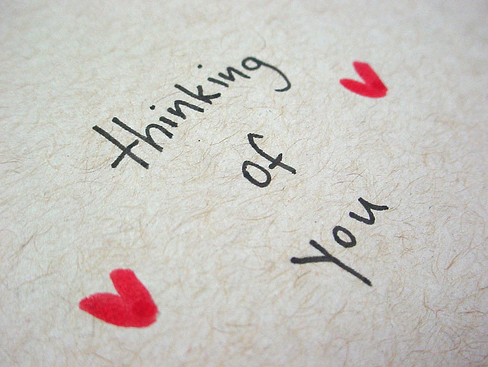 thinking
of
you